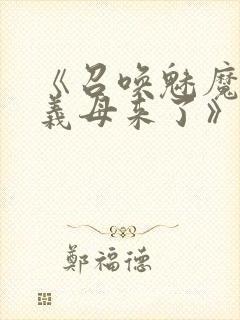 《召唤魅魔
義母来了》
鄭福德